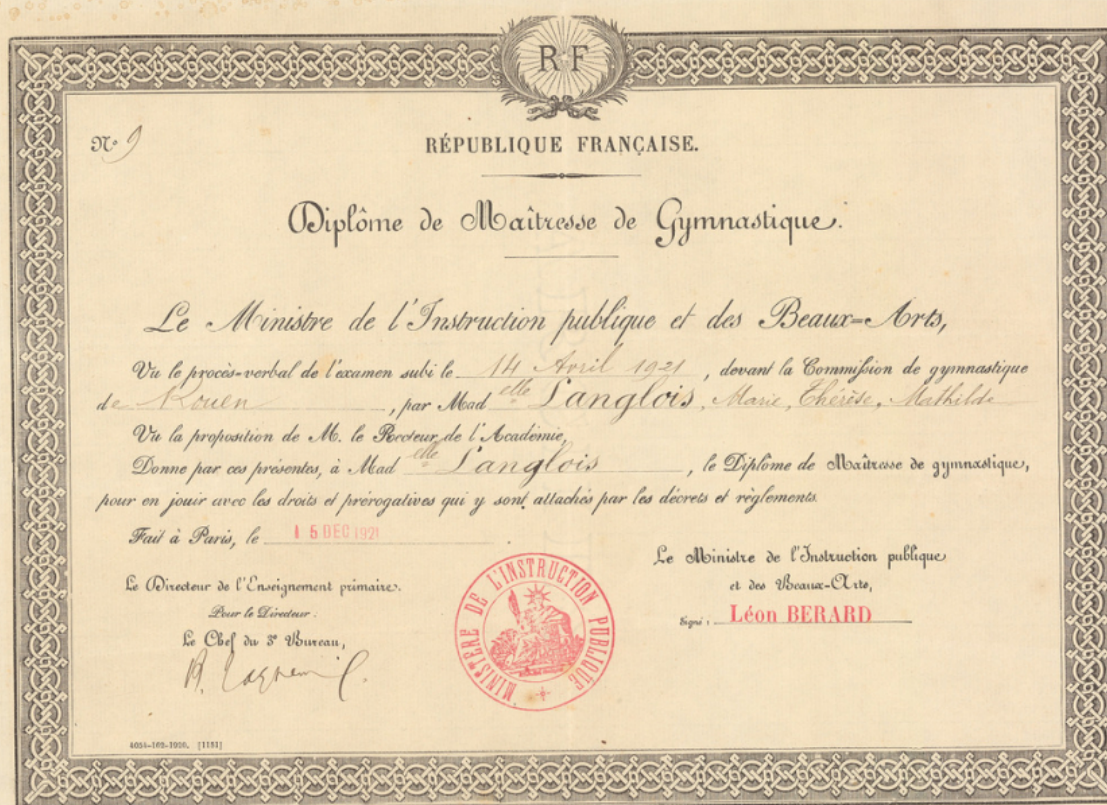 RF
N° 9
RÉPUBLIQUE FRANÇAISE.
Diplôme de Maîtresse de Gymnastique.
Le Ministre de l'Instruction publique et des Beaux=Arts,
Vu le procès-verbal de l'examen subi le 14 Avril 1921, devant la Commission de gymnastique
de Rouen, par Mad elle Langlois, Marie, Thérèse, Mathilde
Vu la proposition de M. le Recteur de l'Académie,
Donne par ces présentes, à Mad elle Langlois, le Diplôme de Maîtresse de gymnastique,
pour en jouir avec les droits et prérogatives qui y sont attachés par les décrets et règlements.
Fait à Paris, le 15 DEC 1921.
Le Directeur de l'Enseignement primaire.
Pour le Directeur :
Le Chef du 3e Bureau,
MINISTÈRE DE L'INSTRUCTION PUBLIQUE
Le Ministre de l'Instruction publique
et des Beaux-Arts,
Signé : Léon BERARD
4034-102-1920. [1131]